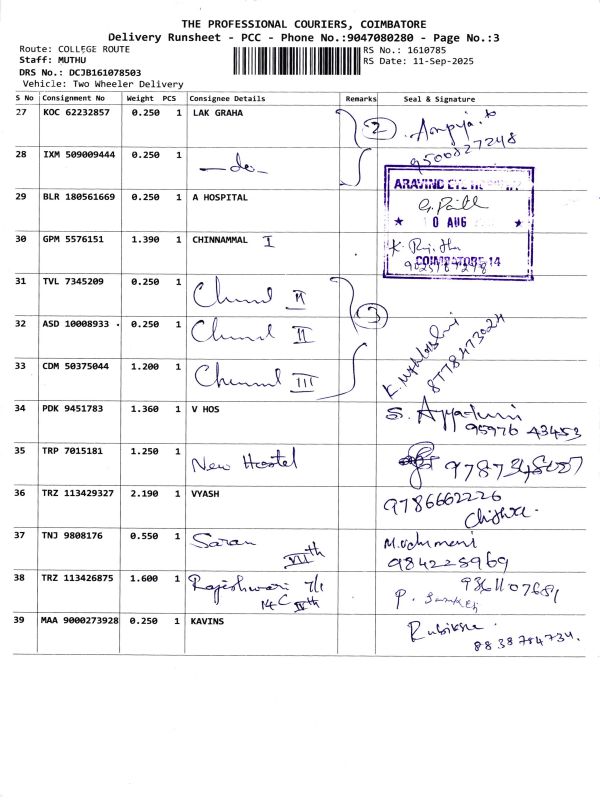 THE PROFESSIONAL COURIERS, COIMBATORE
Delivery Runsheet - PCC - Phone No.:9047080280 - Page No.:3
Route: COLLEGE ROUTE RS No.: 1610785
Staff: MUTHU RS Date: 11-Sep-2025
DRS No.: DCJB161078503
Vehicle: Two Wheeler Delivery
S No Consignment No Weight PCS Consignee Details Remarks Seal & Signature
27 KOC 62232857 0.250 1 LAK GRAHA 2
9500827248
28 IXM 509009444 0.250 1 -do-
ARAVIND EYE
29 BLR 180561669 0.250 1 A HOSPITAL
10 AUG
30 GPM 5576151 1.390 1 CHINNAMMAL I
COIMBATORE-14
31 TVL 7345209 0.250 1 II
3
32 ASD 10008933 . 0.250 1 II
8778473024
33 CDM 50375044 1.200 1 III
34 PDK 9451783 1.360 1 V HOS S.
95976 43453
35 TRP 7015181 1.250 1 New Hostel
36 TRZ 113429327 2.190 1 VYASH 9786662226
37 TNJ 9808176 0.550 1 Saran VIIth
984225969
38 TRZ 113426875 1.600 1 Rajeshwari 9861107681
14C P.
39 MAA 9000273928 0.250 1 KAVINS
8838784734.